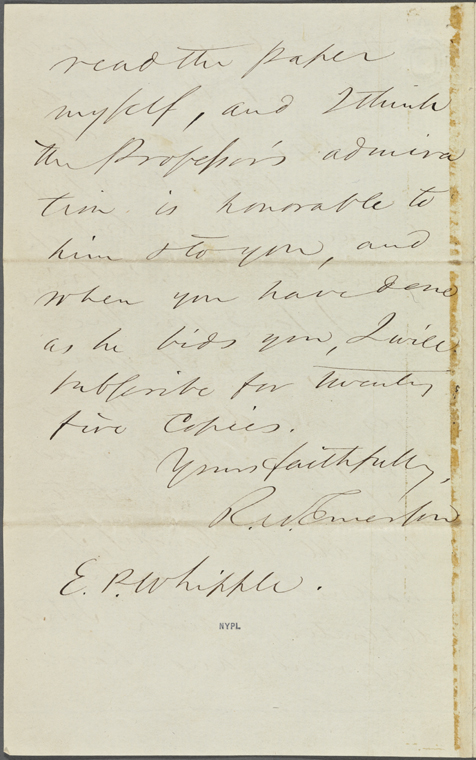 read the paper
myself, and I think
the Professor's admira
tion is honorable to
him & to you, and
when you have done
as he bids you, I will
subscribe for twenty
five copies.
Yours faithfully,
R. W. Emerson
E. P. Whipple.
NYPL